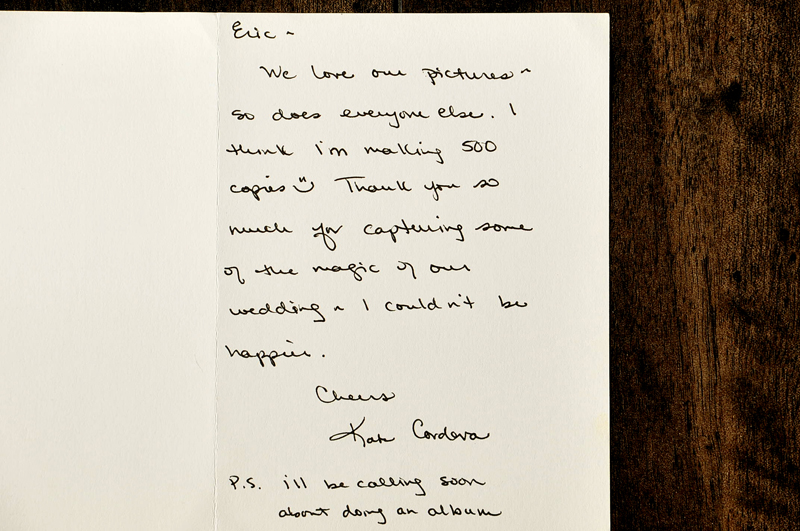 Eric ~
We love our pictures ~
so does everyone else. I
think I'm making 500
copies Thank you so
much for capturing some
of the magic of our
wedding ~ I couldn't be
happier.
Cheers
Kate Cordova
P.S. i'll be calling soon
about doing an album